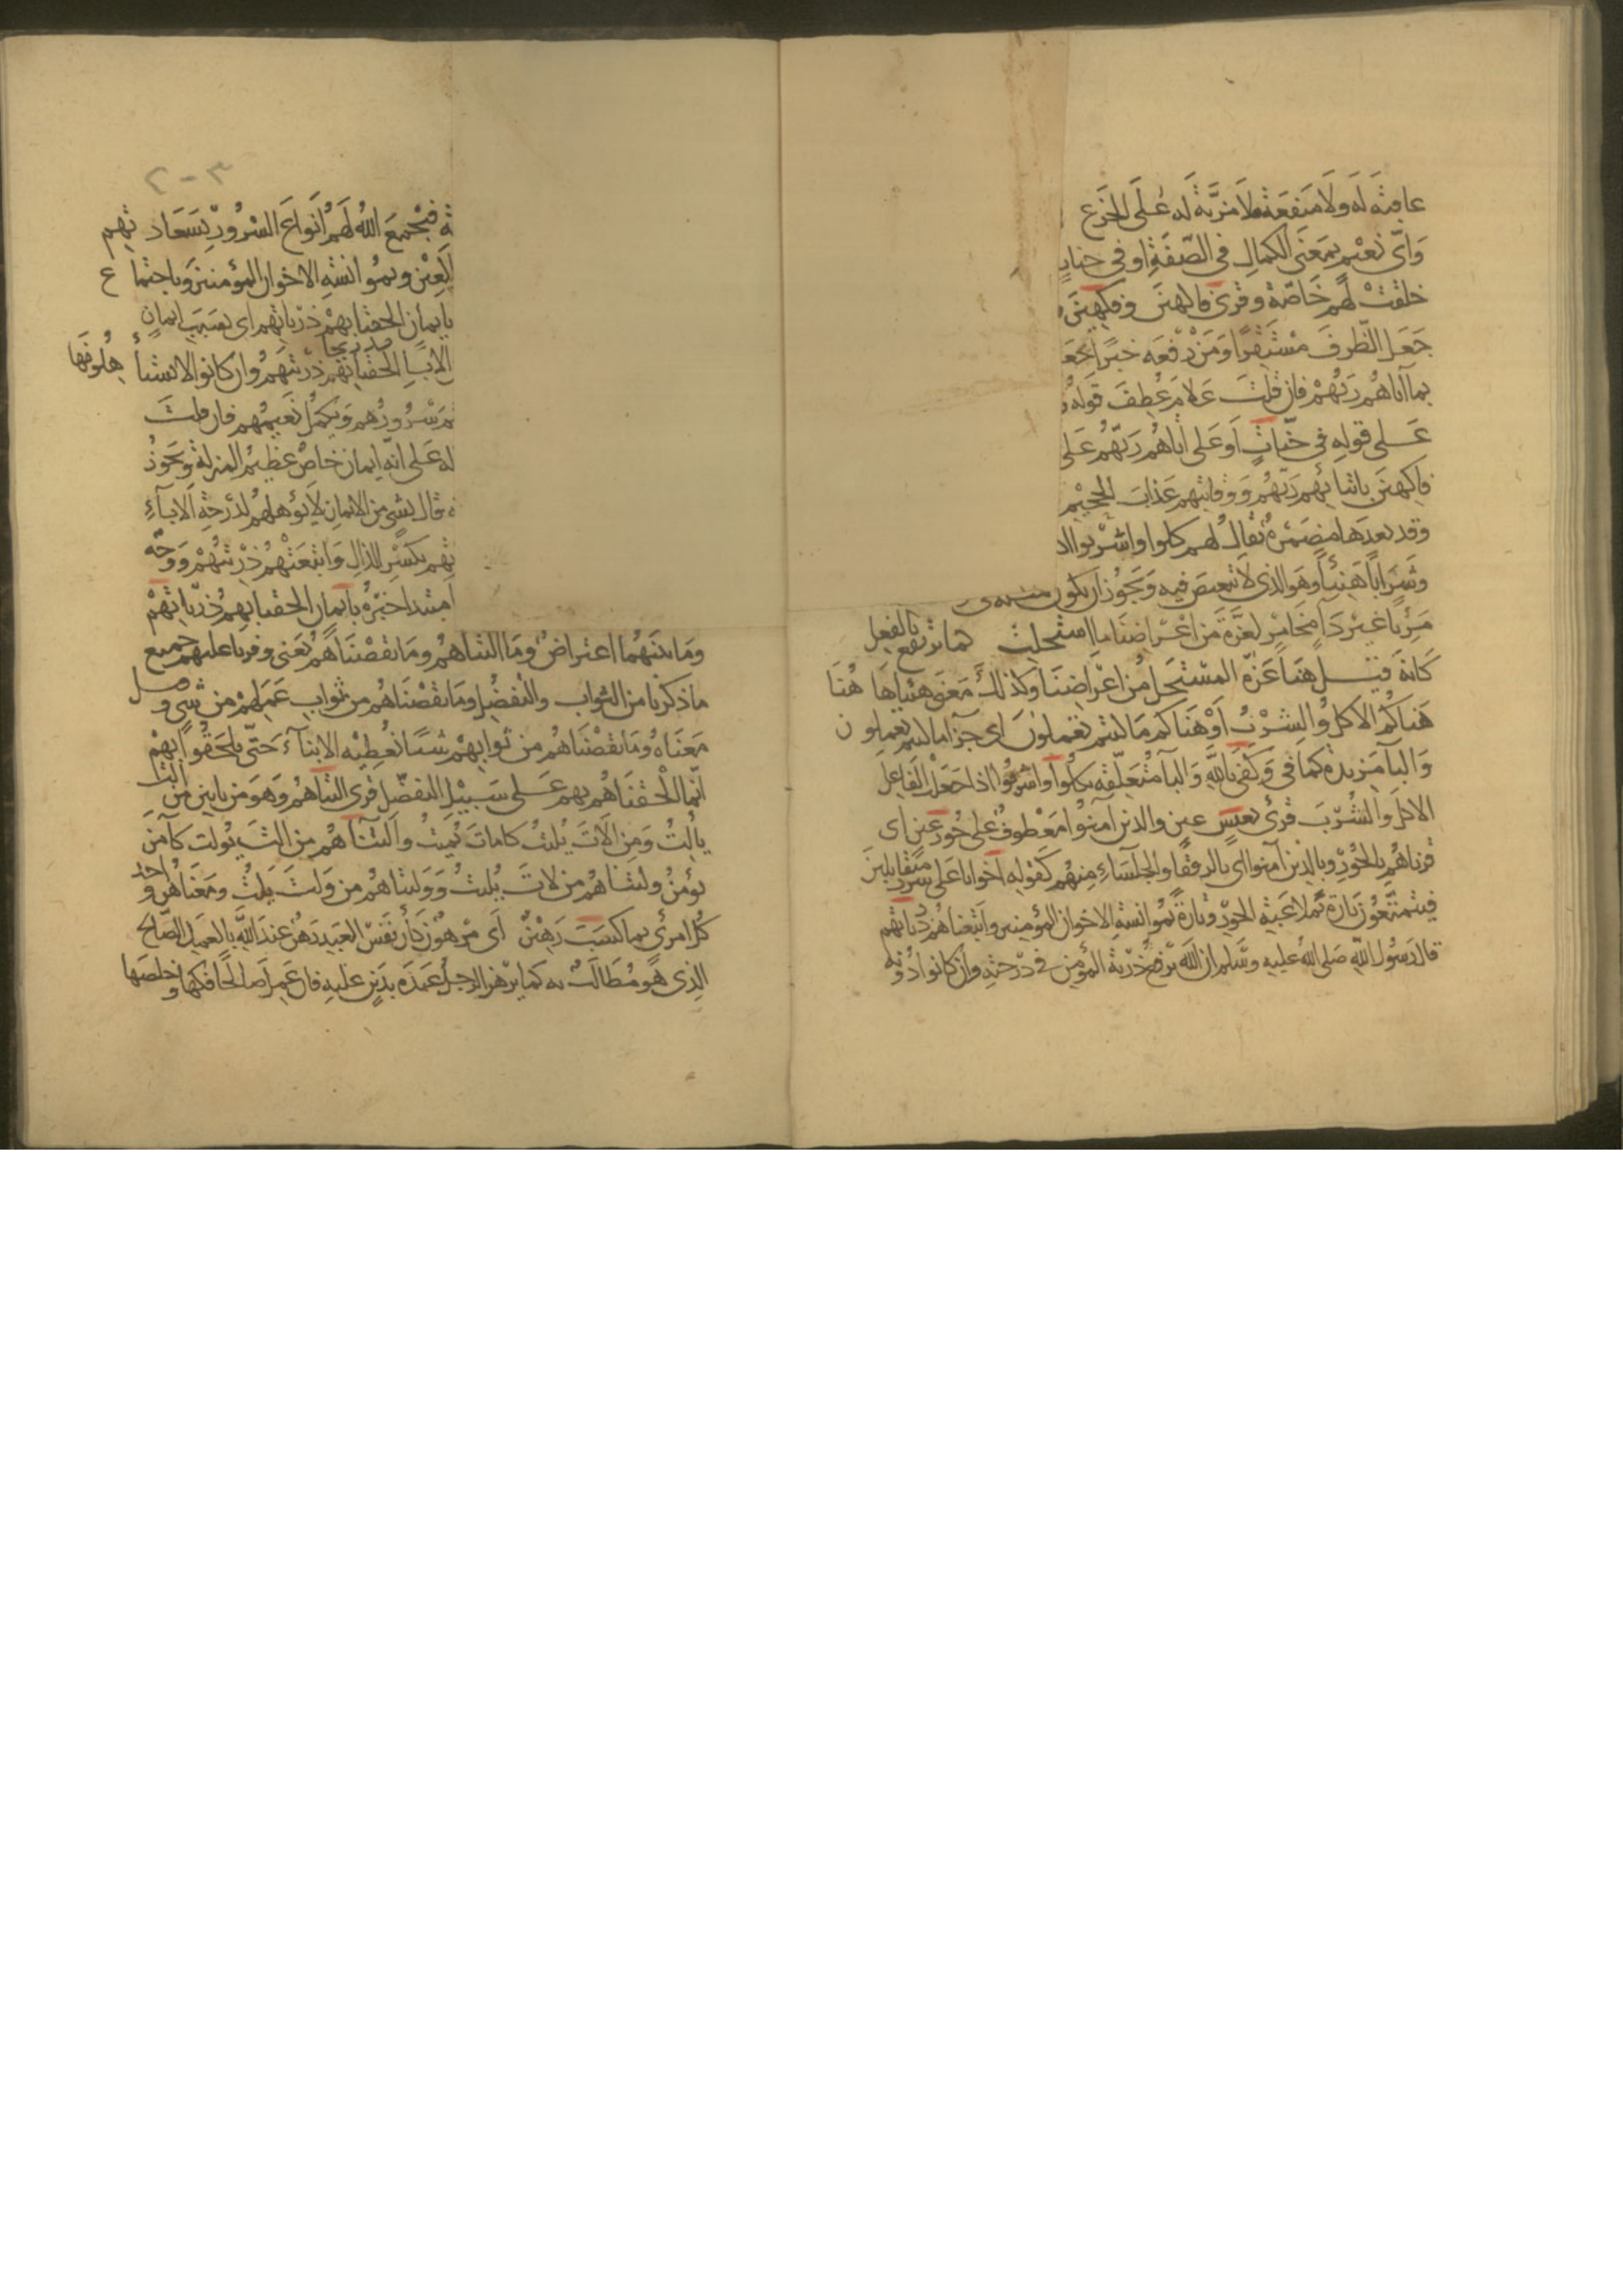 عاقبة له ولا منفعة فلا مزية له على الجزع
وَاىّ نعيم بمعنى الكمال في الصّفة او في جنات
خلقت لهم خاصّة وقرئ فاكهين وفكهين
جعل الظرف مستقرا ومن رفعه خبرا بحعـ
بما آتاهم ربّهم فان قلت علام عُطف قوله و
على قوله في جنّات او على آتاهم ربّهم على
فاكهين باتيائهم ربّهم ووقايتهم عذاب الجحيم
وقد بعدها مضمرة يقال لهم كلوا واشربوا ا
وشرابا هنيئا وهو الذى لا تنغيص فيه ويجوز ان يكون
مريئا غير داء مخامر لعزة من اعراضنا ما استحلت كما ترتفع بالفعل
كانه قيل هنا عزة المستحل من اعراضنا وكذلك معنى هنيئا هاهنا
هناكم الاكل والشرب او هناكم ما كنتم تعملون اى جزآ ما كنتم تعملون
والبا مزيدة كما في وكفى بالله والبا متعلقه بكلوا واشربوا اذا جعل الفاعل
الاكل والشرب قرئ بعيس عين والذين آمنوا معطوف على حور عين اى
قرناهم بالحور وبالذين آمنوا اى بالرفقا والجلساء منهم كقوله اخوانا على سرر متقابلين
فيتمتّعون تارة بملاعبة الحور وتارة بموانسة الاخوان المؤمنين واتبعناهم ذرياتهم
قال رسول الله صلى الله عليه وسلم ان الله يرفع ذرّية المؤمن في درجته وان كانوا دونه
٢٠٣
ـة فيجمع الله لهم انواع السرور بسعادتهم
العين وبموانسة الاخوان المؤمنين وباجتماع
بايمان الحقنا بهم ذرّياتهم اى بسبب ايمان
الابا الحقنا بهم ذرّيتهم وان كانوا لا يستأهلونها
سرورهم ويكمل نعيمهم فان قلت
له على انه ايمان خاصّ عظيم المنزلة ويجوز
قال بشى من الايمان لا يؤهلهم لدرجة الابآء
بكسر الذال واتبعتهم ذرّيتهم ووجه
مبتدا خبره بايمان الحقنا بهم ذرّياتهم
وما بينهما اعتراض وما التناهم وما نقصناهم يعنى وفرنا عليهم جميع
ما ذكرنا من الثواب والتفضّل وما نقصناهم من ثواب عملهم من شى وقيل
معناه وما نقصناهم من ثوابهم شيئا نعطيه الابنآء حتى يلحقوا بهم
انّما الحقناهم بهم على سبيل التفضّل قرئ التناهم وهو من بابين من الت
يألت ومن الات يليت كامات يميت والتناهم من الت يولت كآمن
يؤمن ولتناهم من لات يليت وولتناهم من ولت يلت ومعناهن واحد
كل امرئ بما كسب رهين اى مرهون كأن نفس العبد رهن عند الله بالعمل الصّالح
الذى هو مطالب به كما يرهن الرجل عبده بدين عليه فان عمل صالحا فكها وخلصها